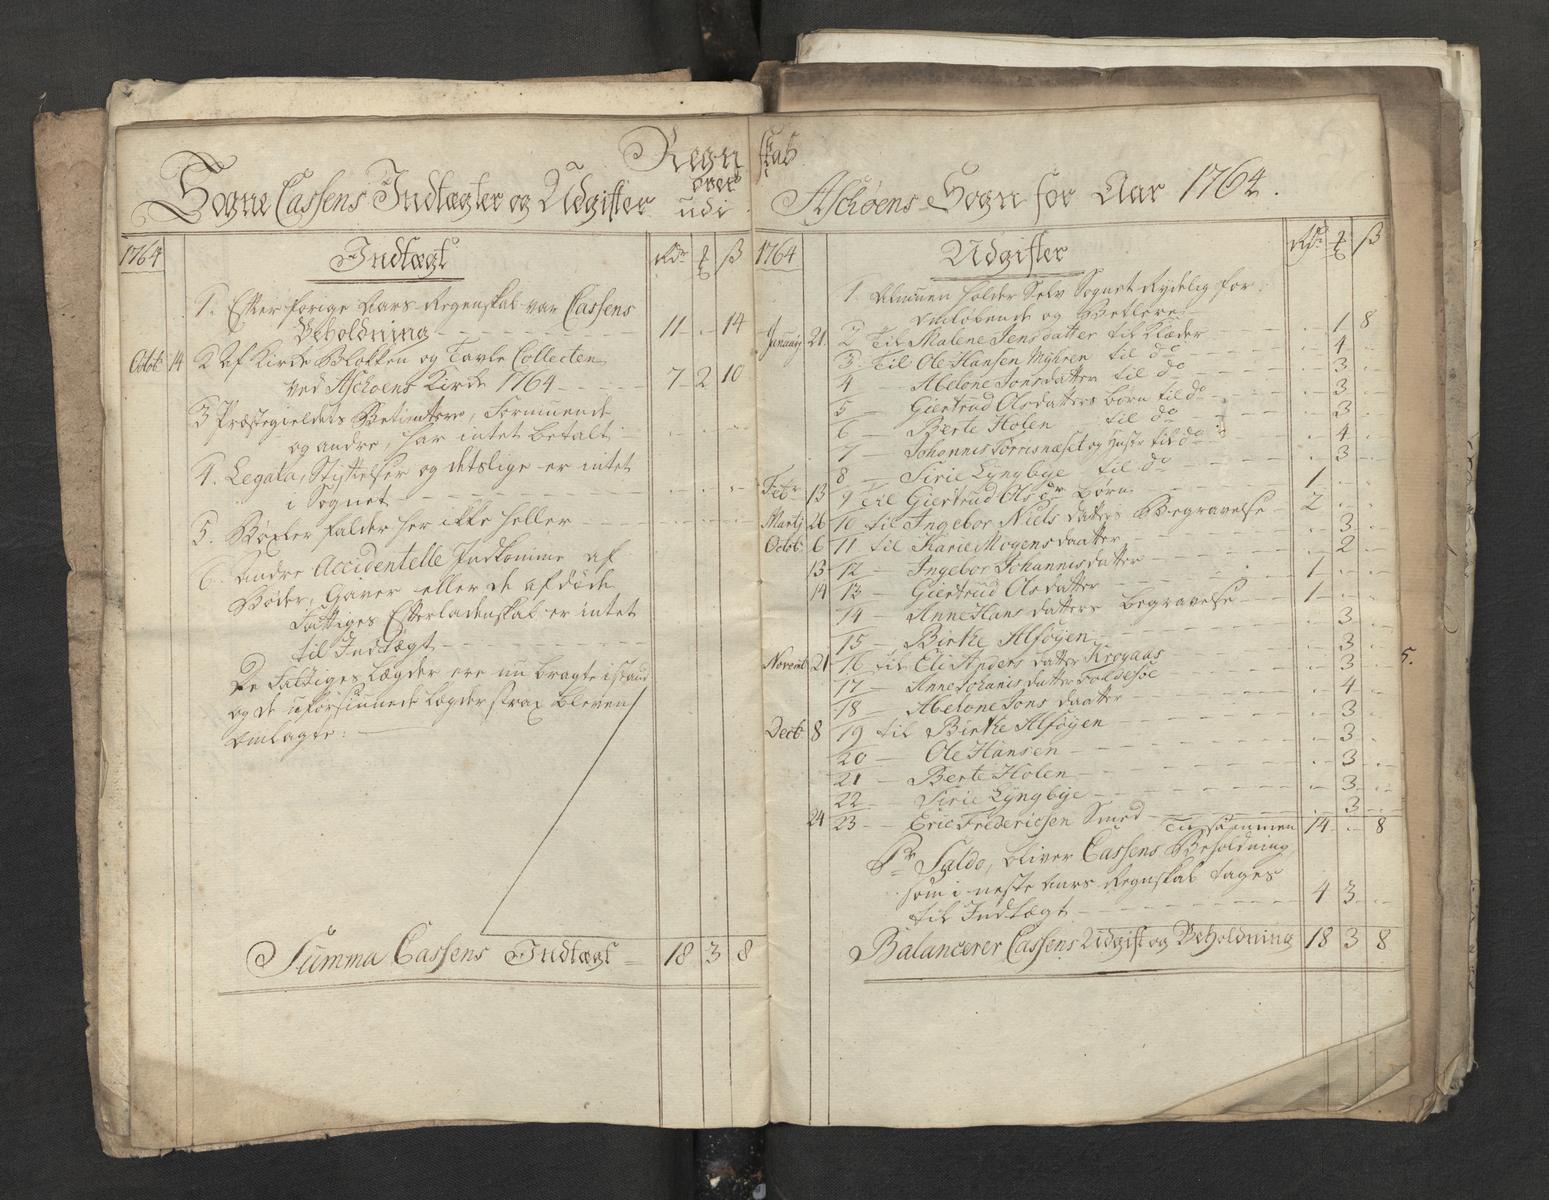 Regnskab
over
Sogne Cassens Indtægter og Udgifter udi Aschøens Sogn for Aar 1764.
1764 Indtægt Rdr ß
1. Efter forige Aars Regenskab var Cassens
Beholdning 11 . 14
Octob: 14 2 Af Kirke Blokken og Tavle Collecten
ved Aschøens Kirke 1764 7 2 10
3 Præstegieldets Betientere, Formuende
og andre, har intet betalt
4. Legata, Stiftelser og detslige er intet
i Sognet
5. Bøxler falder her ikke heller
6. Andre Accidentelle Indkomme af
Bøder, Gaver eller de afdøde
Fattiges Efterladenskab er intet
til Indtægt
De Fattiges Lægder ere nu bragte i stand
og de uforsiunede Lægder strax bleven
Omlagte:
Summa Cassens Indtægt 18 3 8
1764 Udgifter Rdr ß
1. Almuen holder Selv Sognet Rydelig for
Omløbende og Betlere 1 8
Januarj 21 2 Til Malene Jensdatter til Klæder 4
3. Til Ole Hansen Myhren til do 3
4 — Abelone Jonsdatter til do 3
5 — Giertrud Olsdatters børn til do 3
6 — Berte Holen til do 4
7 — Johannis Torrisnæset og Hustr til do 3
8 — Sirie Lyngbye til do 1
Febr 13 9 Til Giertrud Olsdr Børn 2
Martj 26 10 til Ingebor Nielsdatters Begravelse 3
Octob: 6 11 til Karie Mogensdaatter 2
13 12 — Ingebor Johannisdatter 1
14 13 — Giertrud Olsdatter 1
14 — Anne Hansdatters begravelse 3
15 — Birthe Alføyen 3
Novemb 21 16 til Eli Andersdatter Krogaas 3
17 — Anne Johanisdatter 4
18 — Abelone Jonsdaatter 3
Decb 8 19 til Birthe Alføyen 3
20 — Ole Hansen 3
21 — Berte Holen 3
22 — Sirie Lyngbye 3
24 23 — Eric Fredericsen Smed
Tilsammen 14 . 8
Pr Saldo, bliver Cassens Beholdning,
som i neste Aars Regnskab tages
til Indtægt 4 3
Balancerer Cassens Udgift og Beholdning 18 3 8
5.